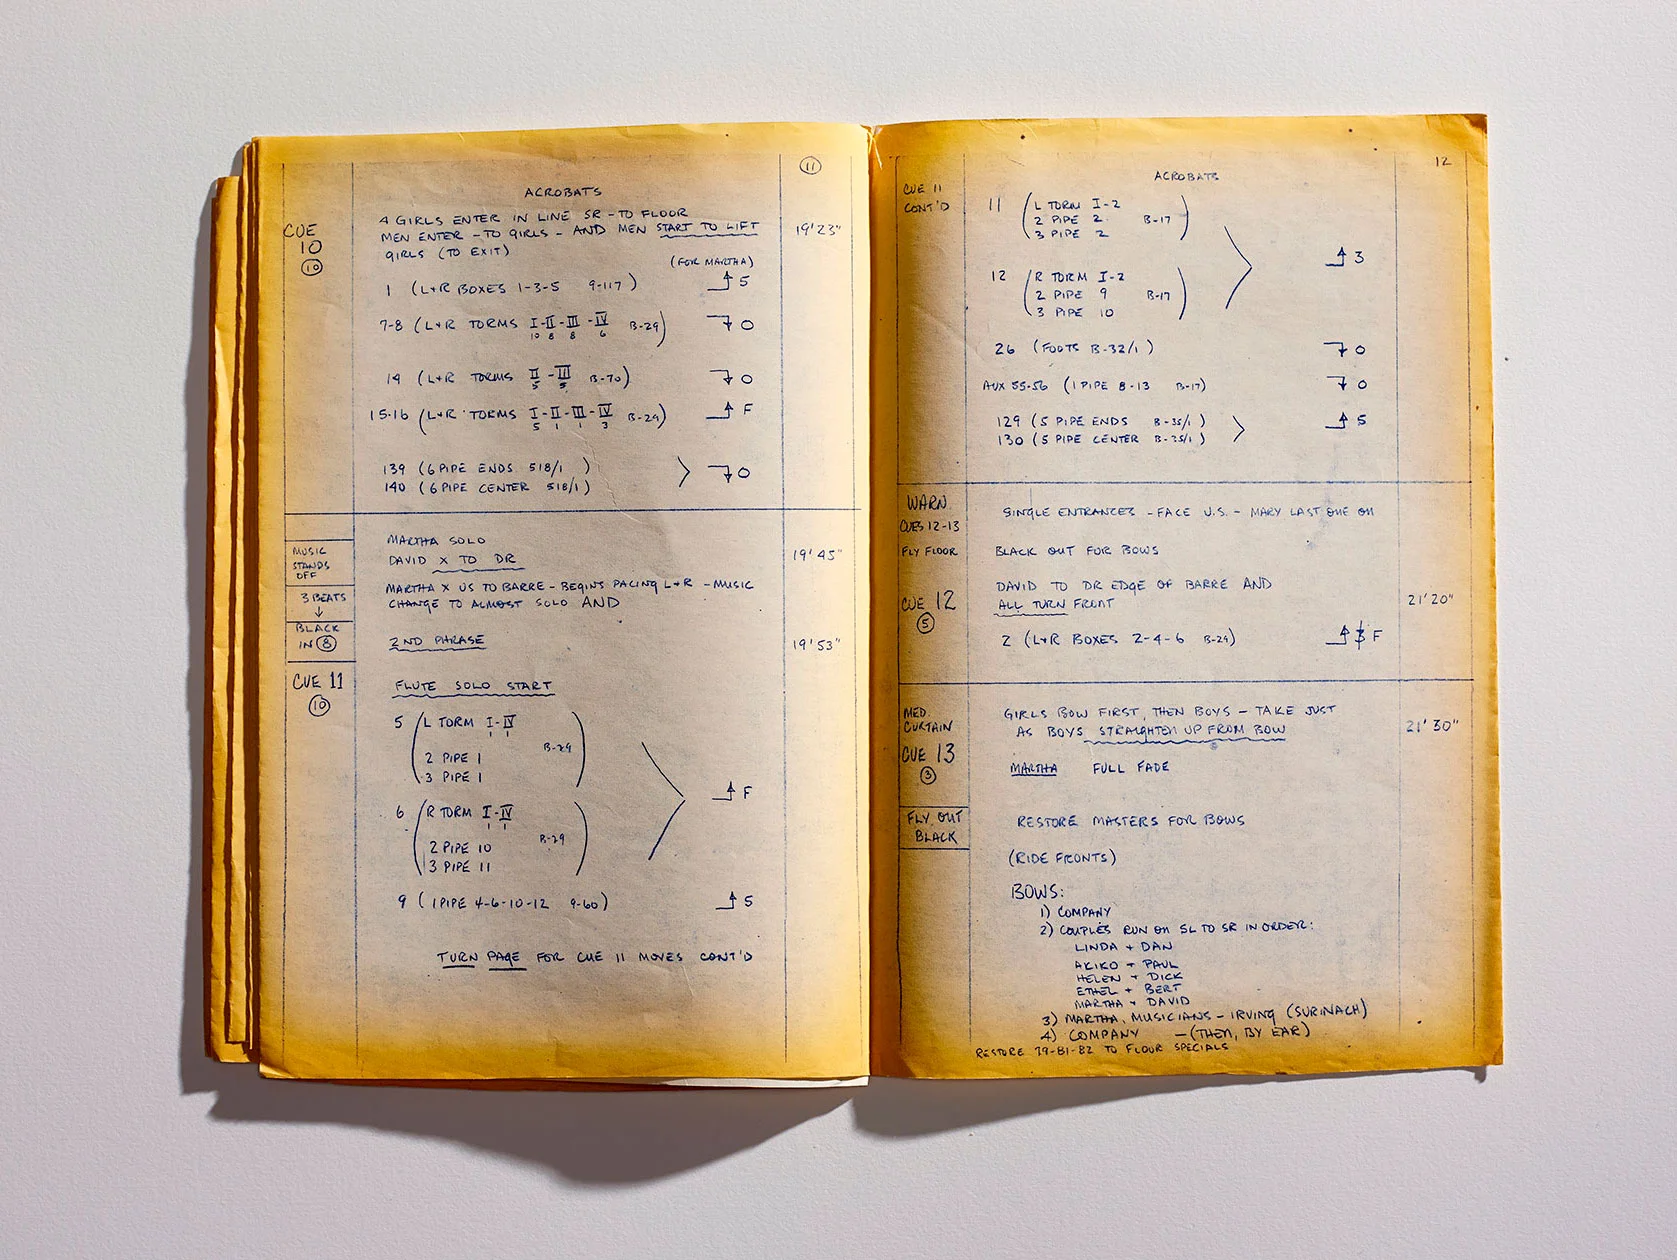 11
ACROBATS
CUE 10
10
4 GIRLS ENTER IN LINE SR - TO FLOOR
MEN ENTER - TO GIRLS - AND MEN START TO LIFT
GIRLS (TO EXIT)
19'23"
(FOR MARTHA)
1 (L+R BOXES 1-3-5 9-117) 5
7-8 (L+R TORMS I-II-III-IV B-29) 0
10 8 8 6
14 (L+R TORMS II-III B-70) 0
5 5
15-16 (L+R TORMS I-II-III-IV B-29) F
5 1 1 3
139 (6 PIPE ENDS 518/1)
140 (6 PIPE CENTER 518/1)
> 0
MUSIC
STANDS
OFF
3 BEATS
↓
BLACK
IN 8
MARTHA SOLO
DAVID X TO DR
19'45"
MARTHA X US TO BARRE - BEGINS PACING L+R - MUSIC
CHANGE TO ALMOST SOLO AND
2ND PHRASE
19'53"
CUE 11
10
FLUTE SOLO START
5 (L TORM I-IV
1 1
2 PIPE 1
3 PIPE 1
B-29)
6 (R TORM I-IV
1 1
2 PIPE 10
3 PIPE 11
B-29)
> F
9 (1 PIPE 4-6-10-12 9-60) 5
TURN PAGE FOR CUE 11 MOVES CONT'D
12
ACROBATS
CUE 11
CONT'D
11 (L TORM I-2
2 PIPE 2 B-17)
3 PIPE 2
12 (R TORM I-2
2 PIPE 9 B-17)
3 PIPE 10
> 3
26 (FOOTS B-32/1) 0
AUX 55-56 (1 PIPE 8-13 B-17) 0
129 (5 PIPE ENDS B-35/1)
130 (5 PIPE CENTER B-35/1)
> 5
WARN
CUES 12-13
FLY FLOOR
SINGLE ENTRANCES - FACE U.S. - MARY LAST ONE ON
BLACK OUT FOR BOWS
CUE 12
5
DAVID TO DR EDGE OF BARRE AND
ALL TURN FRONT
21'20"
2 (L+R BOXES 2-4-6 B-29) F
MED.
CURTAIN
CUE 13
3
GIRLS BOW FIRST, THEN BOYS - TAKE JUST
AS BOYS STRAIGHTEN UP FROM BOW
21'30"
MARTHA FULL FADE
FLY OUT
BLACK
RESTORE MASTERS FOR BOWS
(RIDE FRONTS)
BOWS:
1) COMPANY
2) COUPLES RUN ON SL TO SR IN ORDER:
LINDA + DAN
AKIKO + PAUL
HELEN + DICK
ETHEL + BERT
MARTHA + DAVID
3) MARTHA, MUSICIANS - IRVING (SURINACH)
4) COMPANY - (THEN, BY EAR)
RESTORE 79-81-82 TO FLOOR SPECIALS